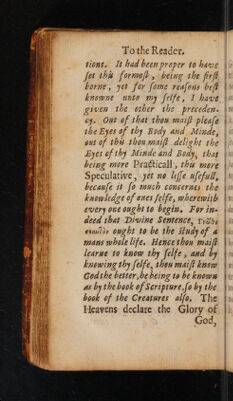 To the Reader.
tions. It had been proper to have
ſet this formoſt, being the firſt
borne, yet for ſome reaſons beſt
knowne unto my ſelfe, I have
given the other the preceden-
cy. Out of that thou maiſt pleaſe
the Eyes of thy Body and Minde,
out of this thou maiſt delight the
Eyes of thy Minde and Body, that
being more Practicall, this more
Speculative, yet no leſſe uſefull,
becauſe it ſo much concernes the
knowledge of ones ſelfe, wherewith
every one ought to begin. For in-
deed that Divine Sentence,
ought to be the ſtudy of a
mans whole life. Hence thou maiſt
learne to know thy ſelfe, and by
knowing thy ſelfe, thou maiſt know
God the better, he being to be known
as by the book of Scripture, ſo by the
book of the Creatures alſo. The
Heavens declare the Glory of
God,